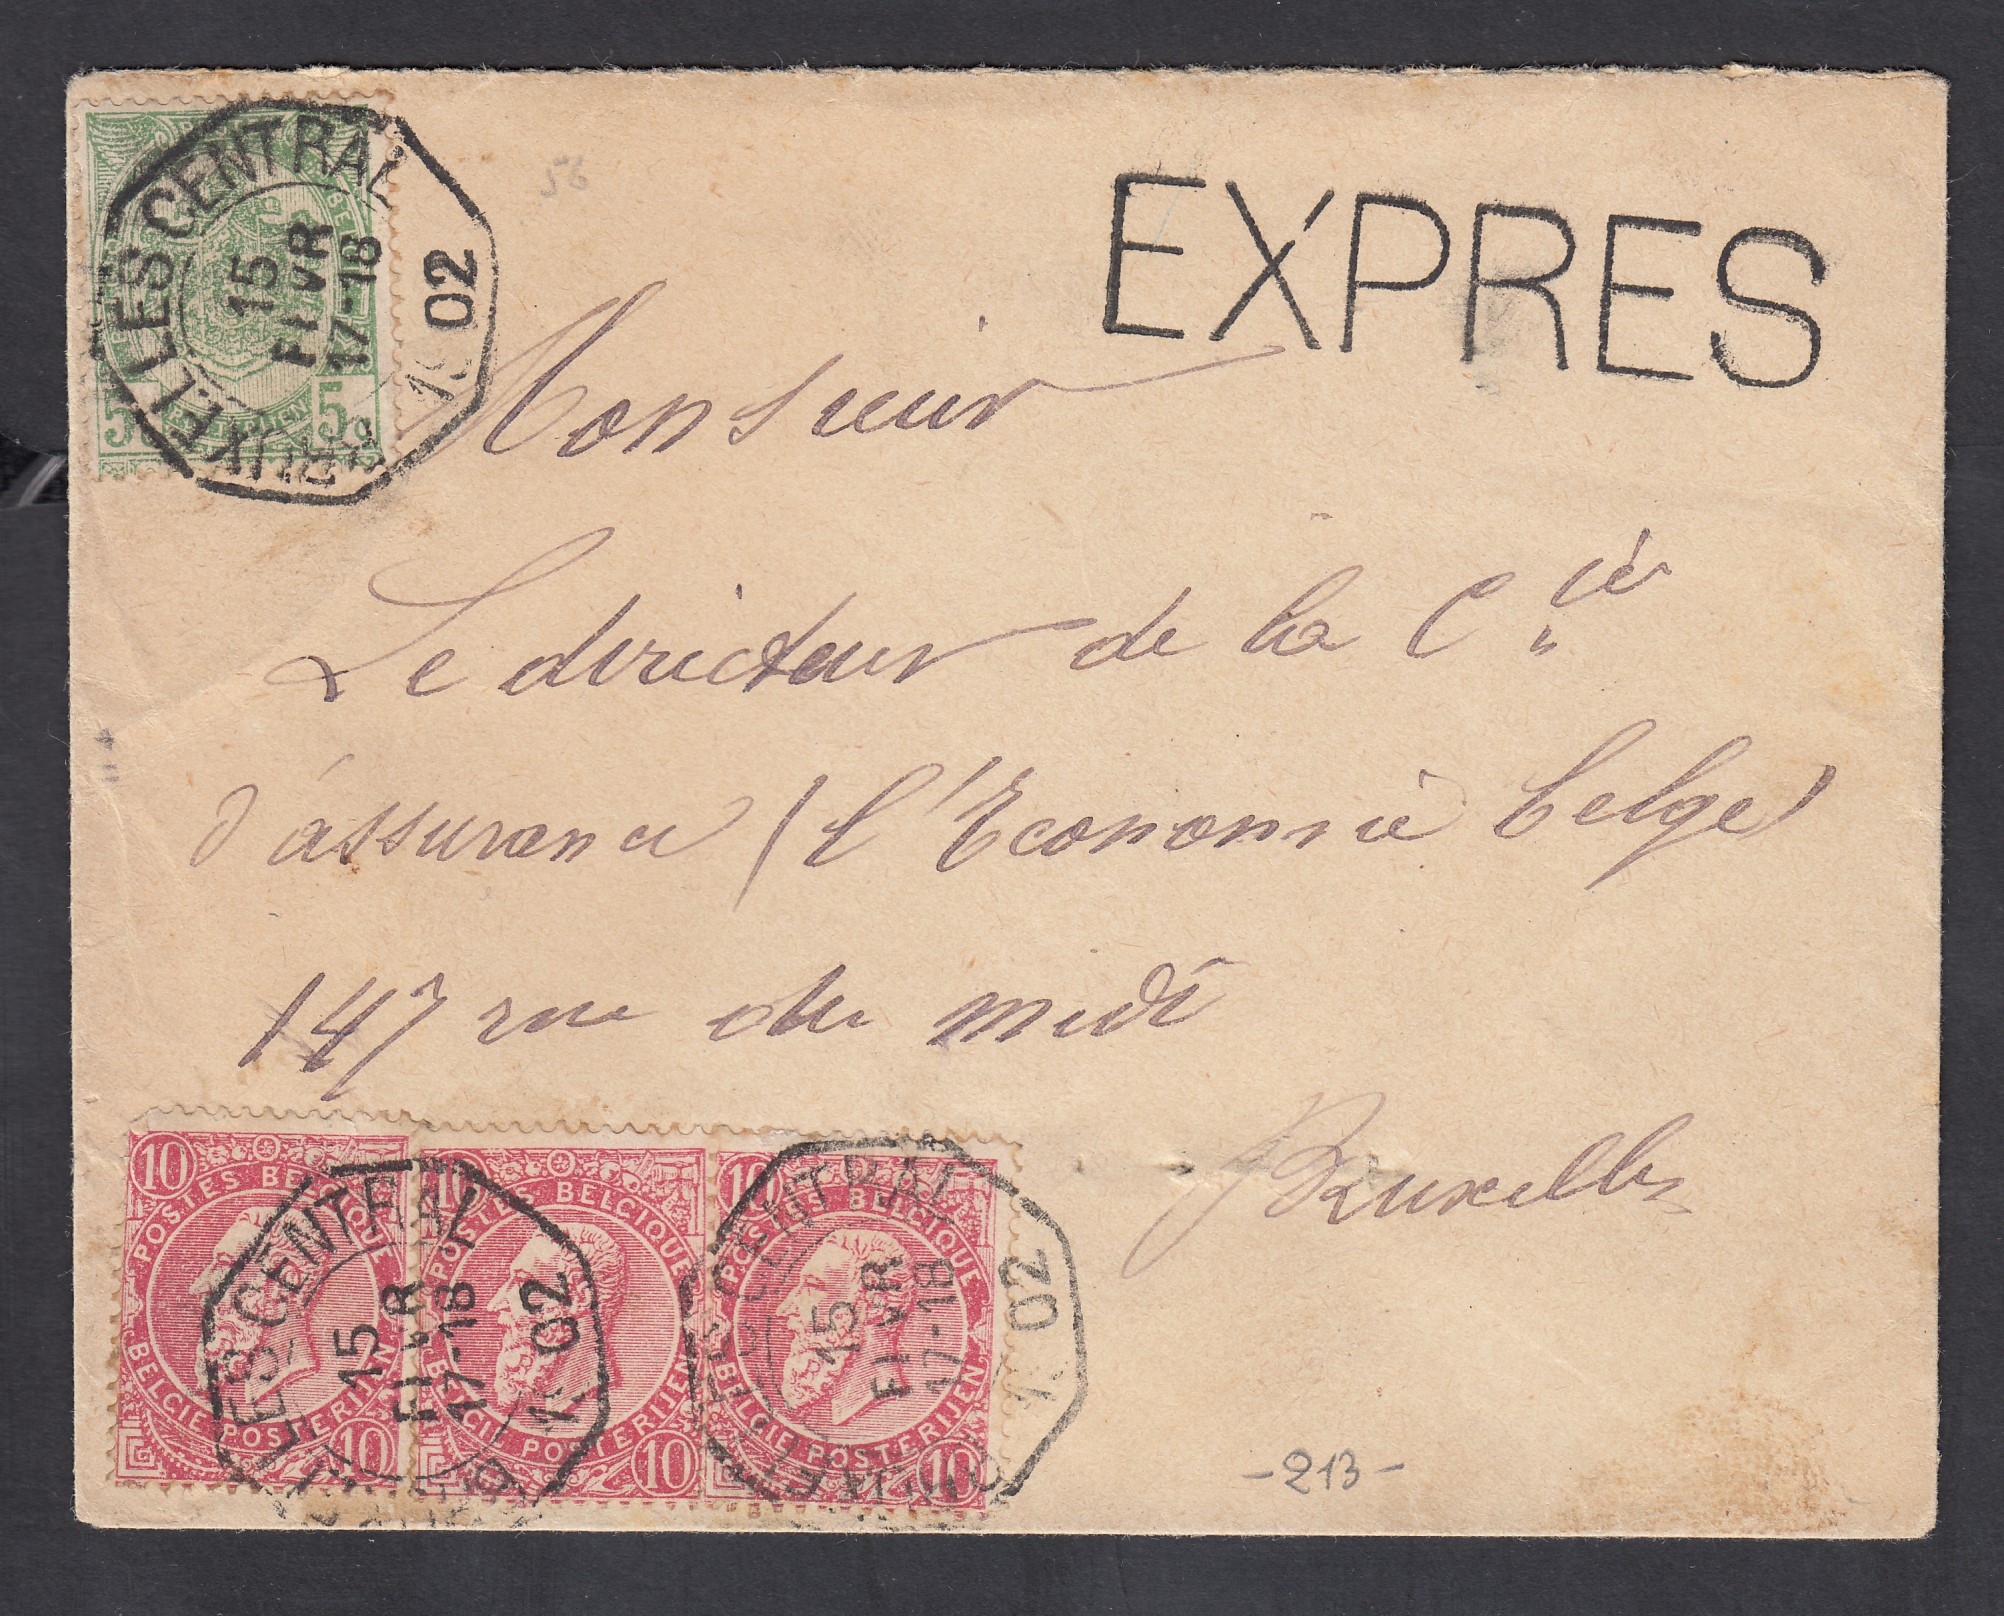 EXPRES
56
BRUXELLES CENTRAL
15
FEVR
17-18
1902
5 c 5 c
Monsieur
Le directeur de la Cie
d'assurance (l'Economie belge)
147 rue du midi
Bruxelles
10 10 10
POSTES BELGIQUE POSTES BELGIQUE POSTES BELGIQUE
BELGIE POSTERIJEN BELGIE POSTERIJEN BELGIE POSTERIJEN
10 10 10
BRUXELLES CENTRAL
15
FEVR
17-18
1902
BRUXELLES CENTRAL
15
FEVR
17-18
1902
- 213 -